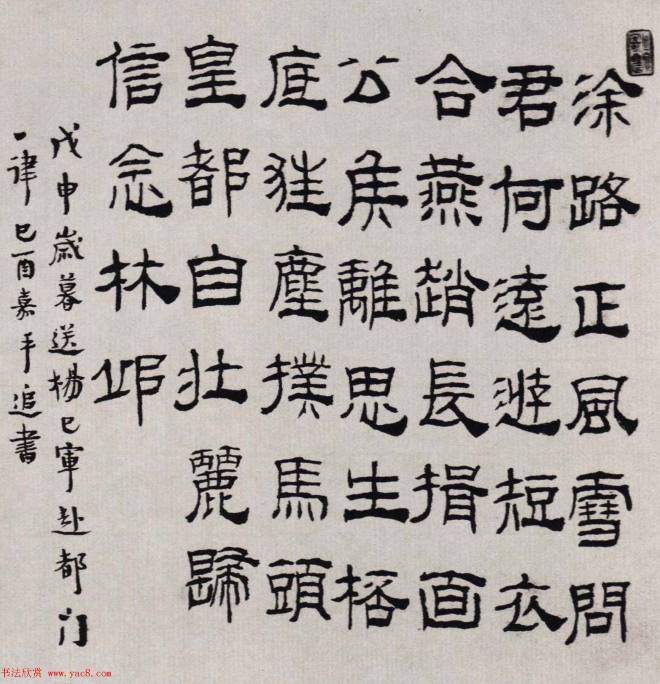 涂路正風雪問
君何遠遊短衣
合燕趙長揖面
公侯離思生桮
底狂塵撲馬頭
皇都自壯麗歸
信念林邱
戊申歲暮送楊己軍赴都門
一律己酉嘉平追書
书法欣赏 www.yac8.com